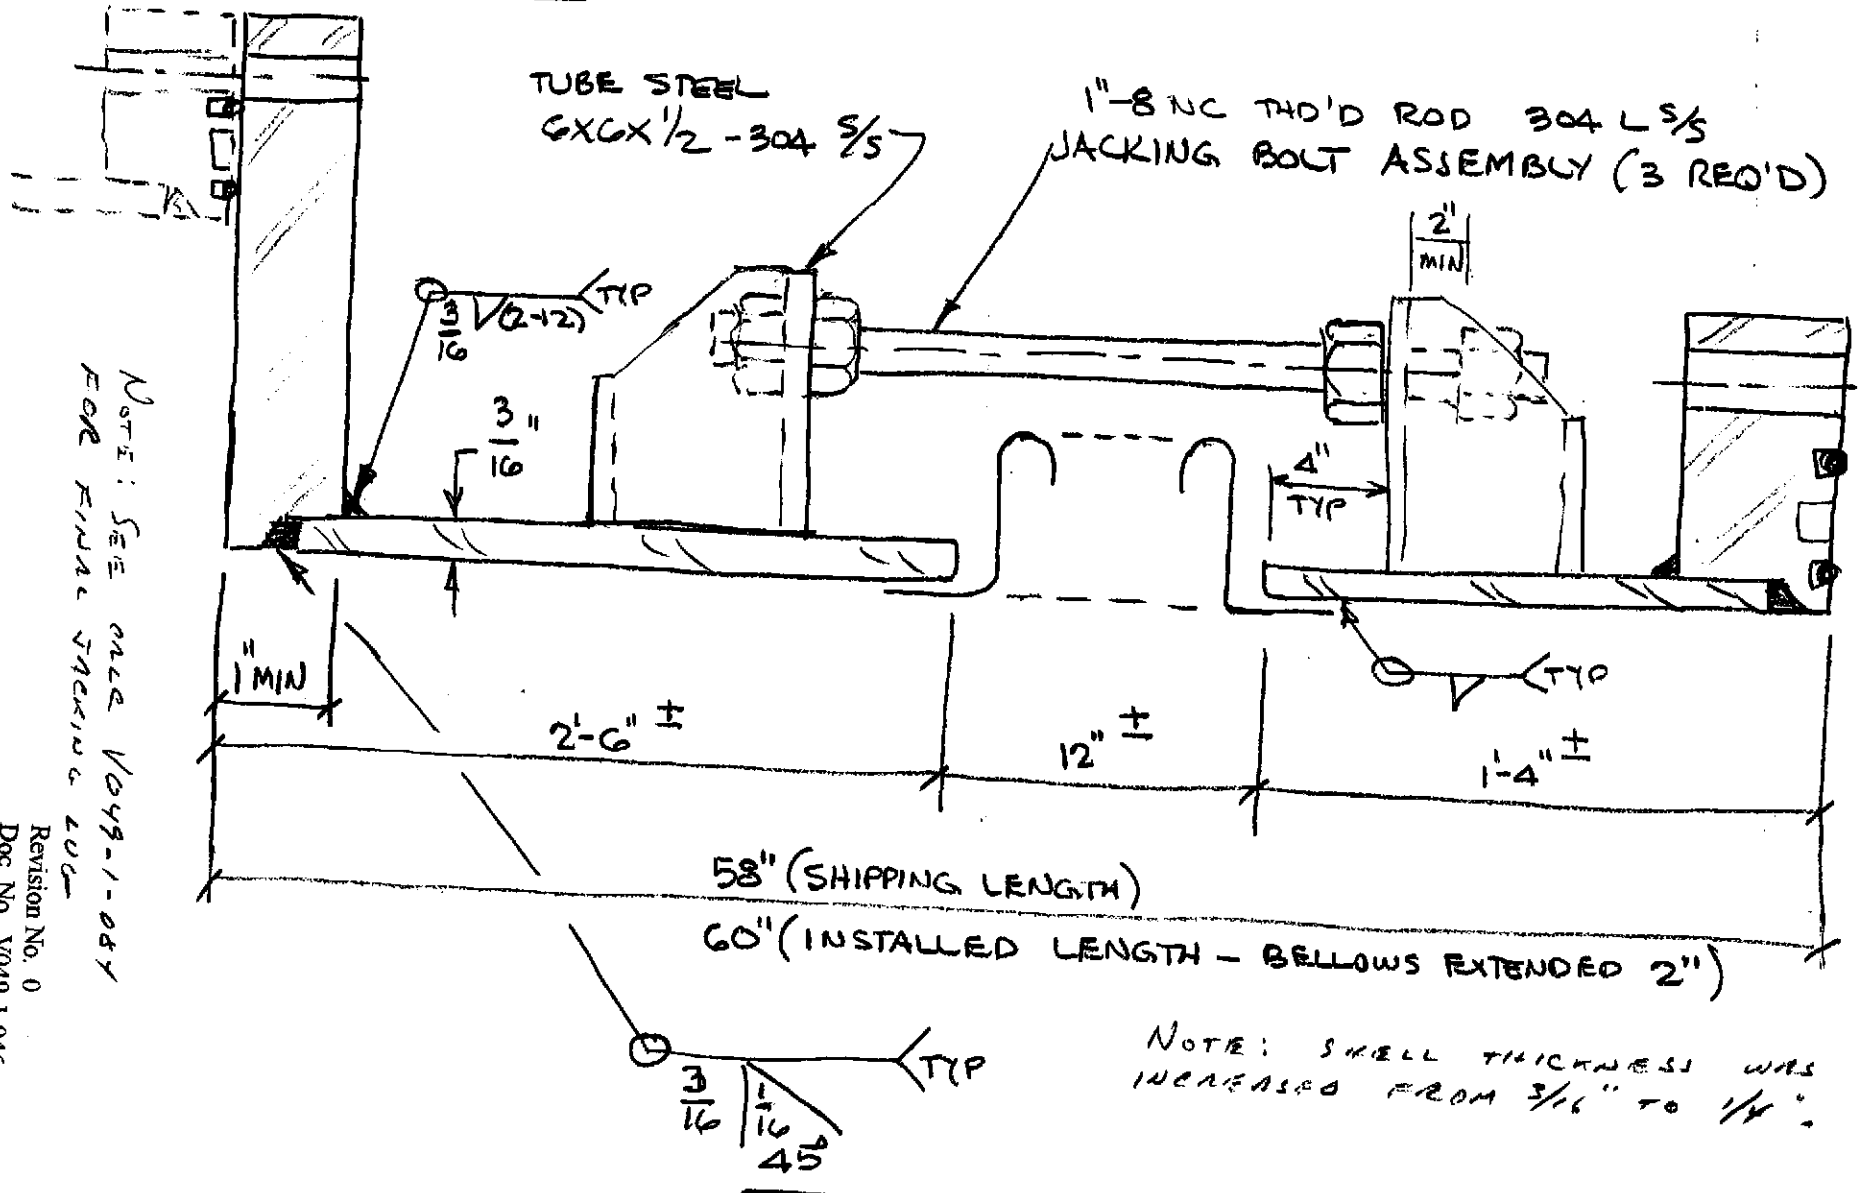 TUBE STEEL
6X6X1/2 - 304 S/S
1"-8 NC THD'D ROD 304 L S/S
JACKING BOLT ASSEMBLY (3 REQ'D)
2"
MIN
TYP
3/16 (2-12)
3/16"
4"
TYP
1" MIN
2'-6" ±
12" ±
1'-4" ±
TYP
58" (SHIPPING LENGTH)
60" (INSTALLED LENGTH - BELLOWS EXTENDED 2")
TYP
3/16
1/16
45°
NOTE: SHELL THICKNESS WAS
INCREASED FROM 3/16" TO 1/4".
NOTE: SEE CALC V049-1-084
FOR FINAL JACKING LUG
Revision No. 0
Doc No. V049-1-046